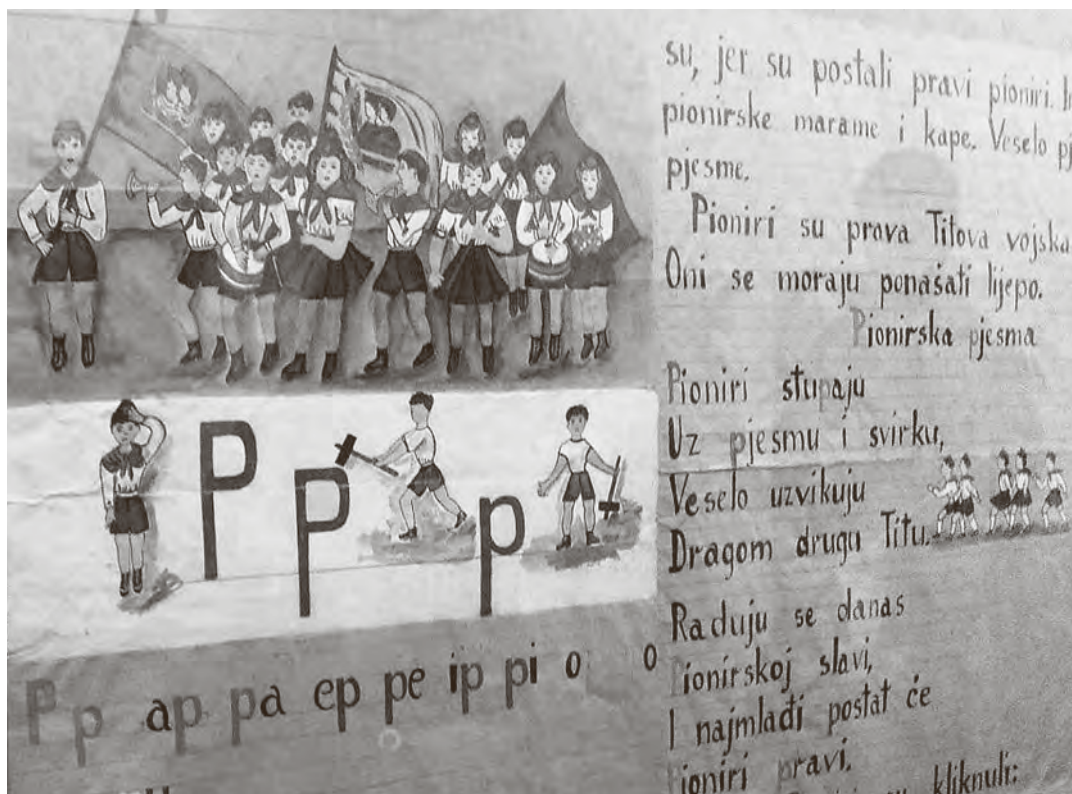 P P p
P p ap pa ep pe ip pi o o
su, jer su postali pravi pioniri.
pionirske marame i kape. Veselo
pjesme.
Pioniri su prava Titova vojska
Oni se moraju ponašati lijepo.
Pionirska pjesma
Pioniri stupaju
Uz pjesmu i svirku,
Veselo uzvikuju
Dragom drugu Titu.
Raduju se danas
Pionirskoj slavi,
I najmlađi postat će
Pioniri pravi.
kliknuli: